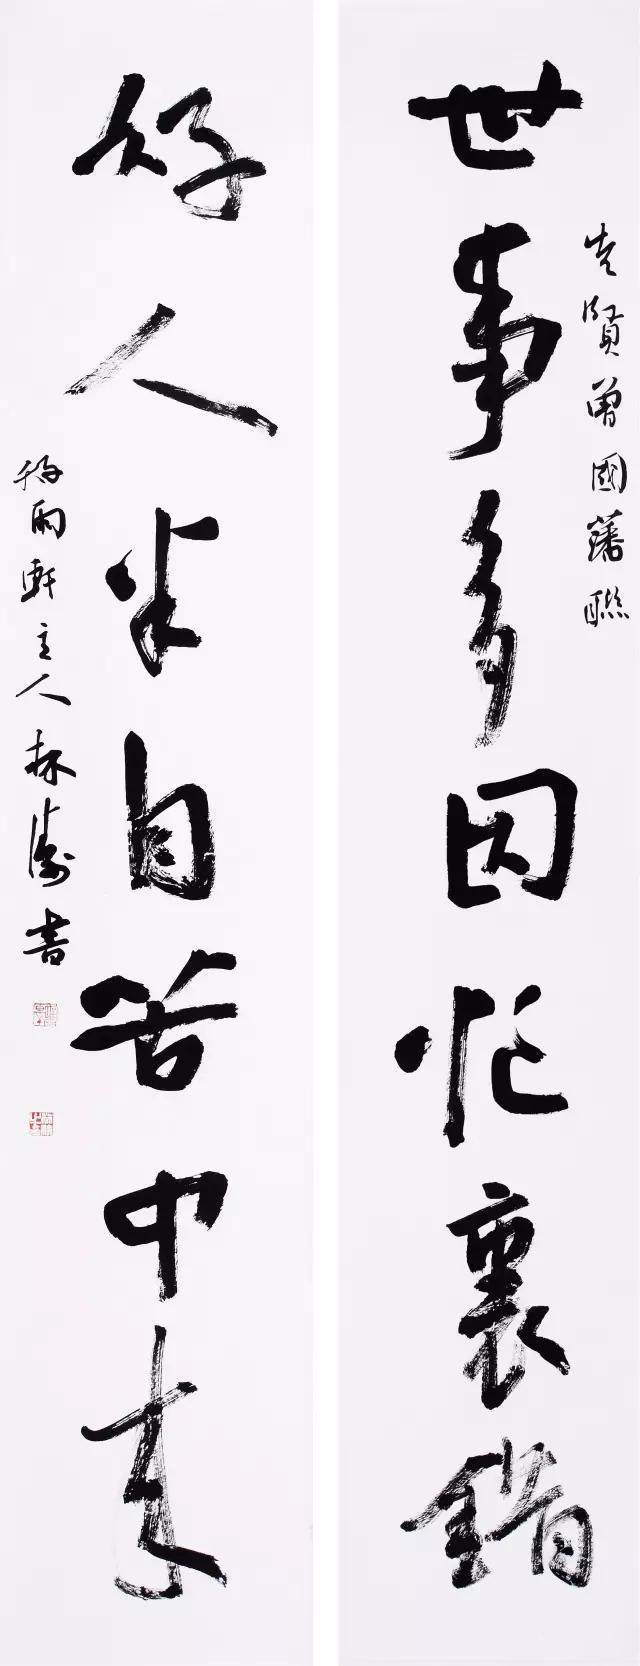 先賢曾國藩聯
世事多因忙裏錯
好人半自苦中來
好雨軒主人林濤書